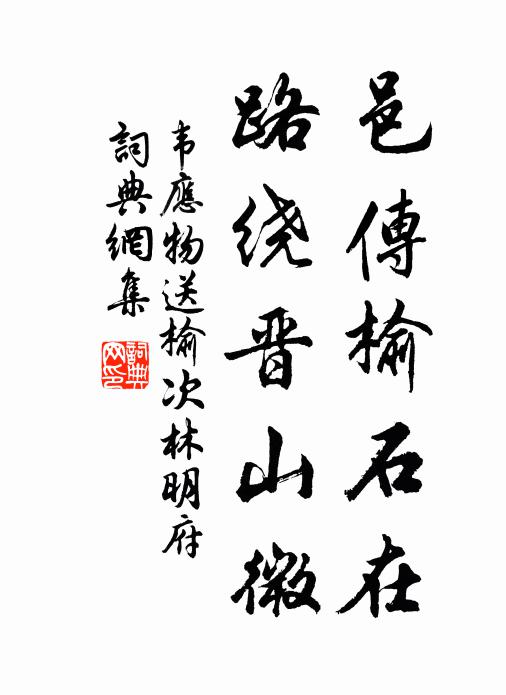 邑傳榆石在
路绕晋山微
韦應物送榆次林明府
詞典網集
詞典网印